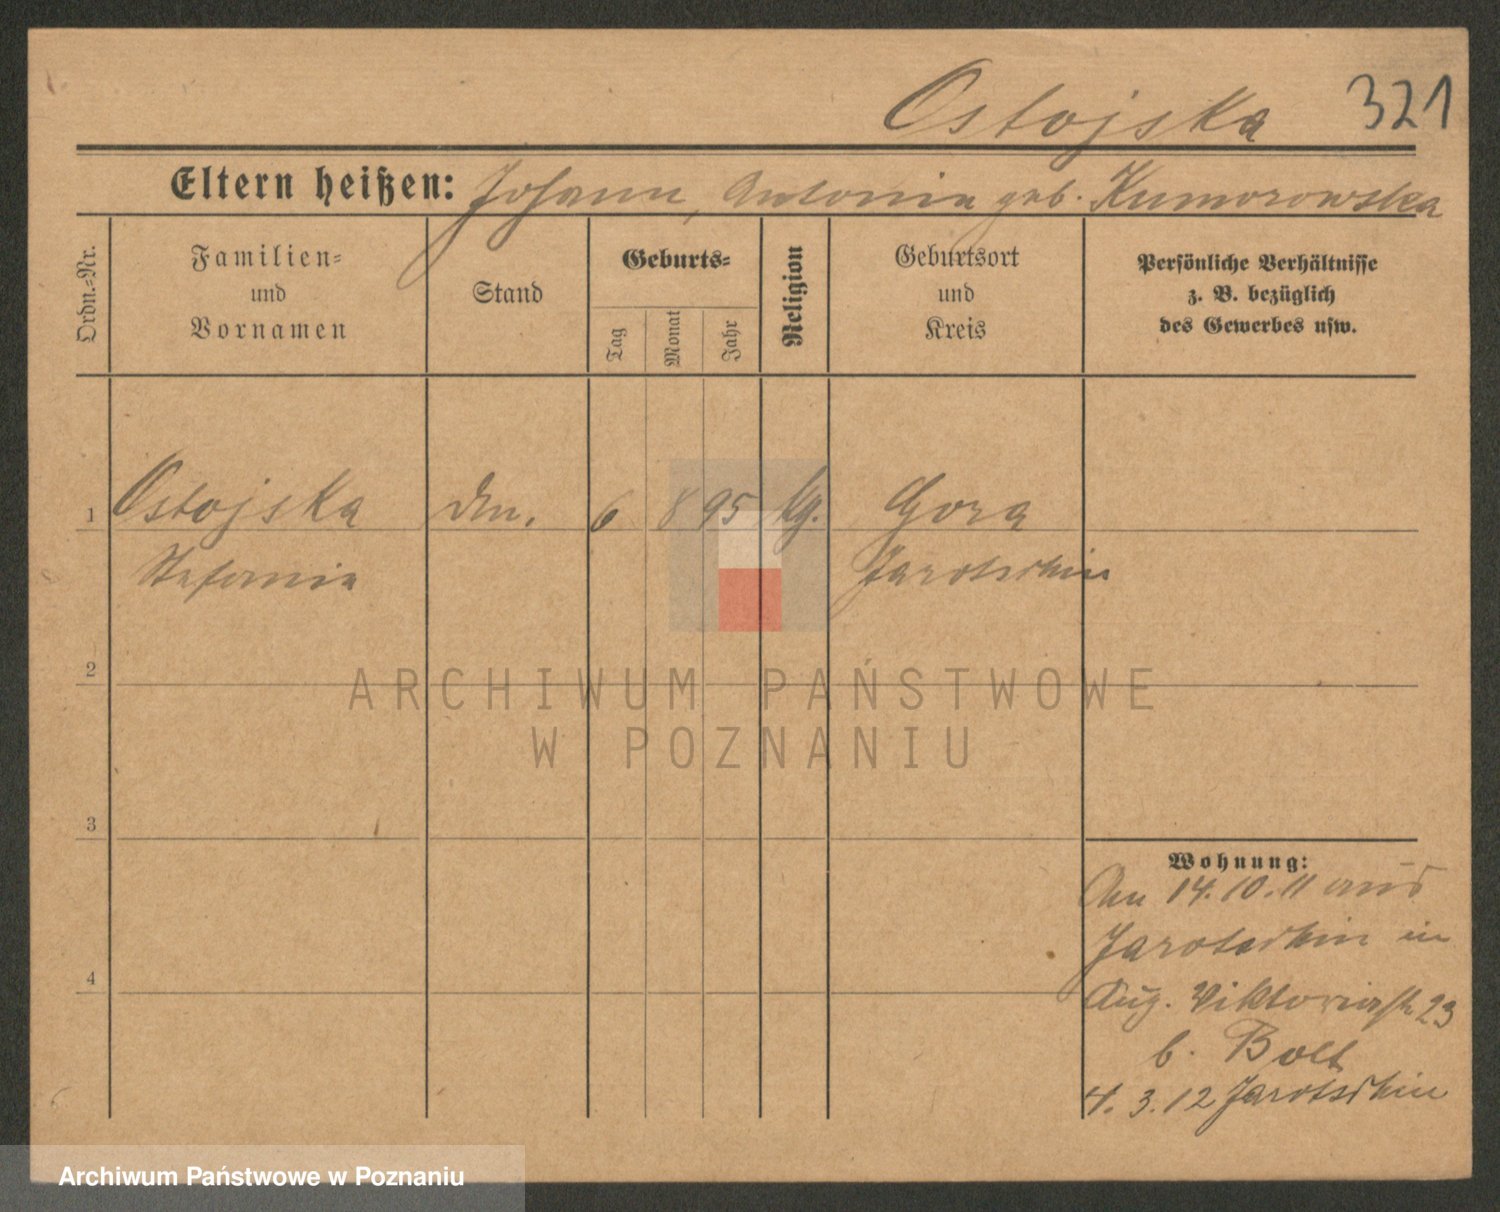 Ostojska 321
Eltern heißen: Johann, Antonin geb. Kumorowska
Ordn.-Nr.
Familien-
und
Vornamen
Stand
Geburts-
Tag
Monat
Jahr
Religion
Geburtsort
und
Kreis
Persönliche Verhältnisse
z. B. bezüglich
des Gewerbes usw.
1 Ostojska 6 8 95 Gora
Stefania Jarotschin
2
ARCHIWUM PAŃSTWOWE
W POZNANIU
3
Wohnung:
14.10.11 aus
Jarotschin in
4
Aug. Viktoriastr 23
b. Bolt
4.3.12 Jarotschin
Archiwum Państwowe w Poznaniu